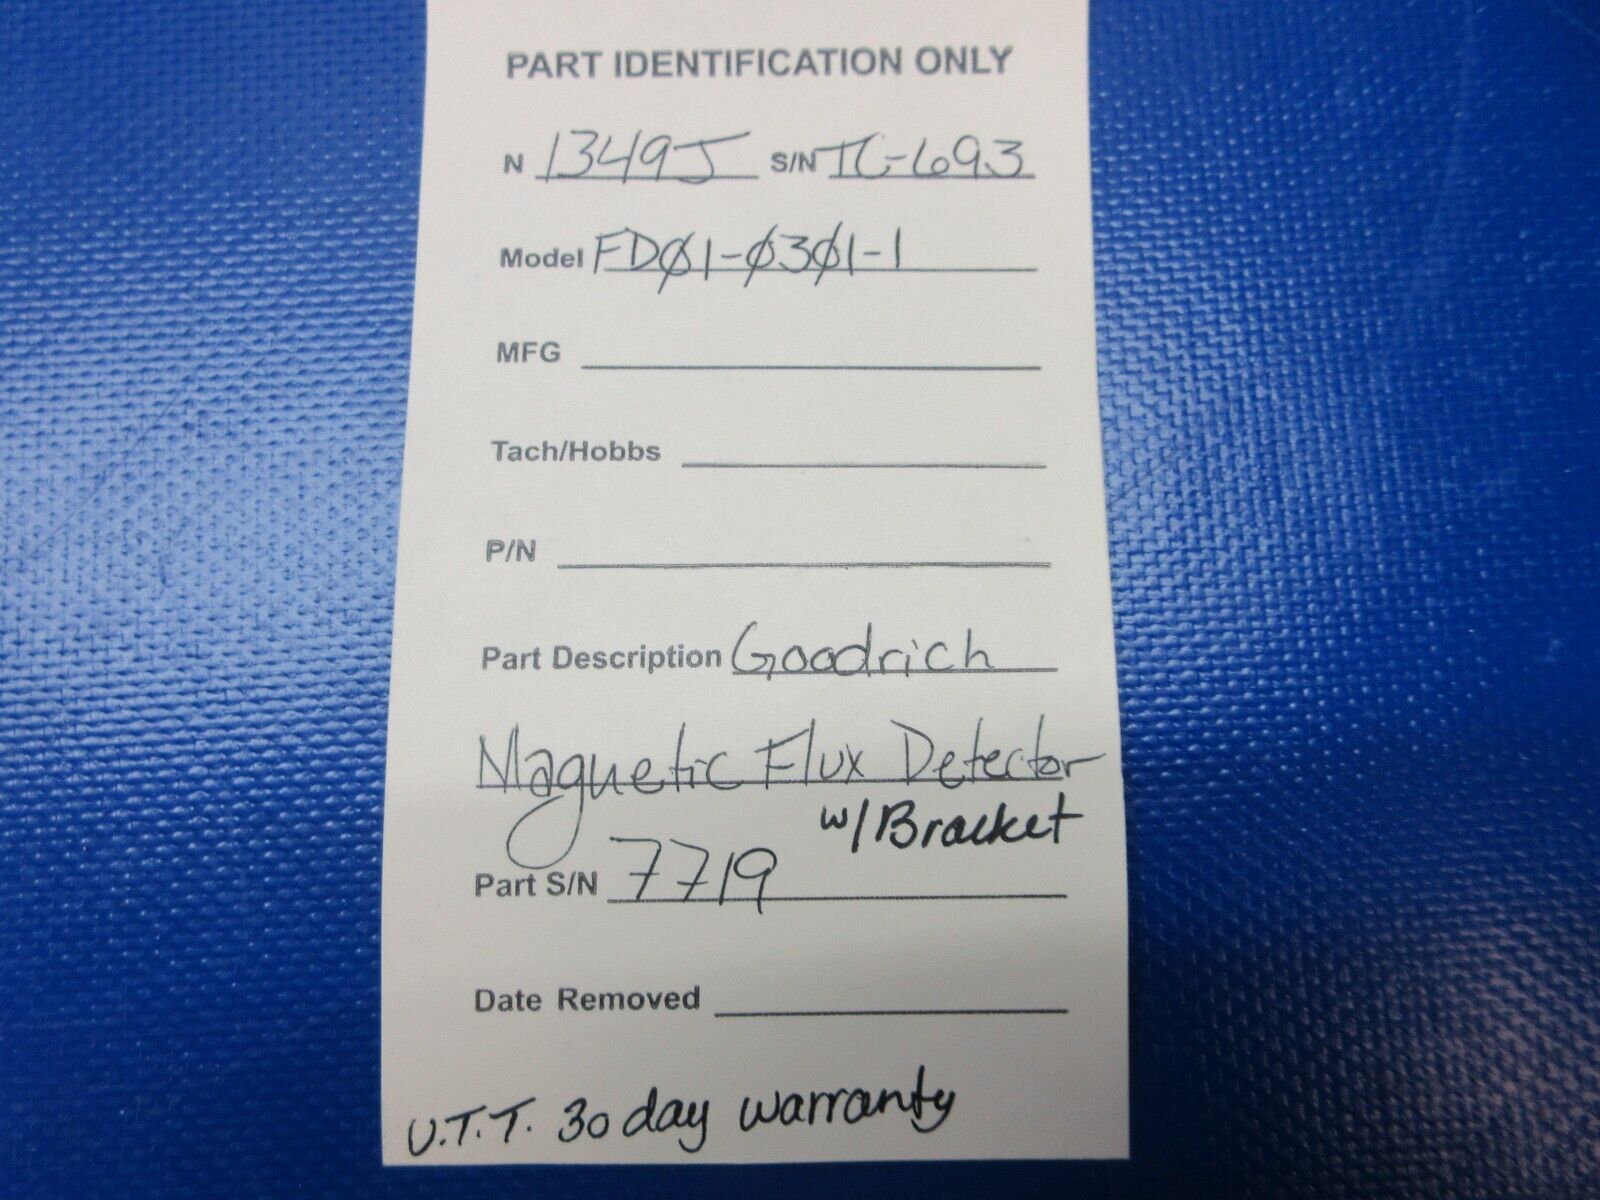 PART IDENTIFICATION ONLY
N 1349J S/N TC-693
Model FDØ1-Ø3Ø1-1
MFG
Tach/Hobbs
P/N
Part Description Goodrich
Magnetic Flux Detector
w/Bracket
Part S/N 7719
Date Removed
U.T.T. 30 day warranty